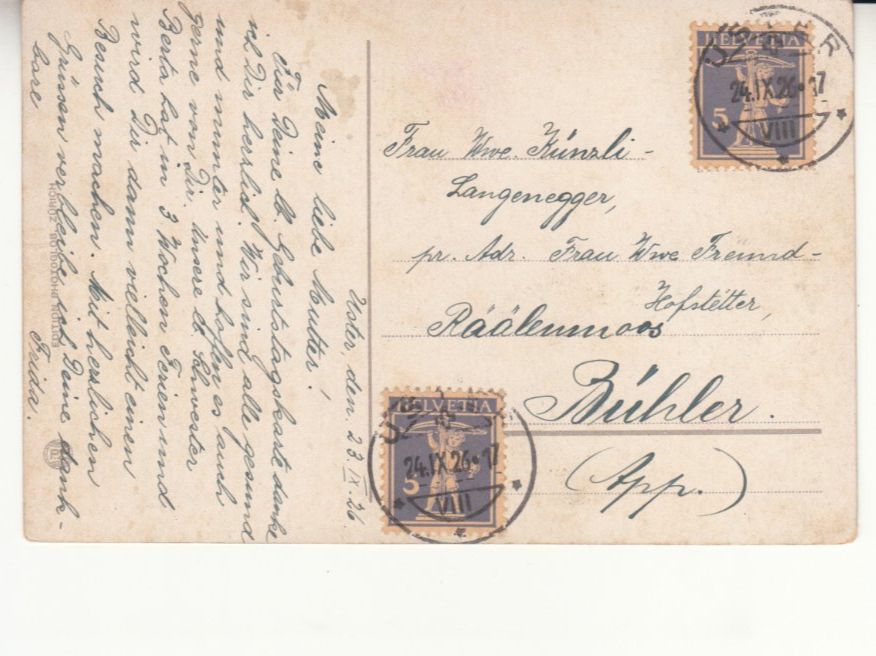 Uster, den 23.IX.26.
Meine liebe Mutter!
Für Deine lb. Geburtstagskarte danke
ich Dir herzlich! Wir sind alle gesund
und munter und hoffen es auch
gerne von Dir. Unsere lb. Schwester
Berta hat in 3 Wochen Ferien und
wird Dir dann vielleicht einen
Besuch machen. Mit herzlichen
Grüssen verbleibe ich Deine dank-
bare
Frida.
Frau Wwe. Künzli-
Langenegger,
pr. Adr. Frau Wwe Freund-
Hofstetter,
Räälenmoos
Bühler.
(App.)
HELVETIA
5
USTER
24.IX.26•17
VIII
HELVETIA
5
USTER
24.IX.26•17
VIII